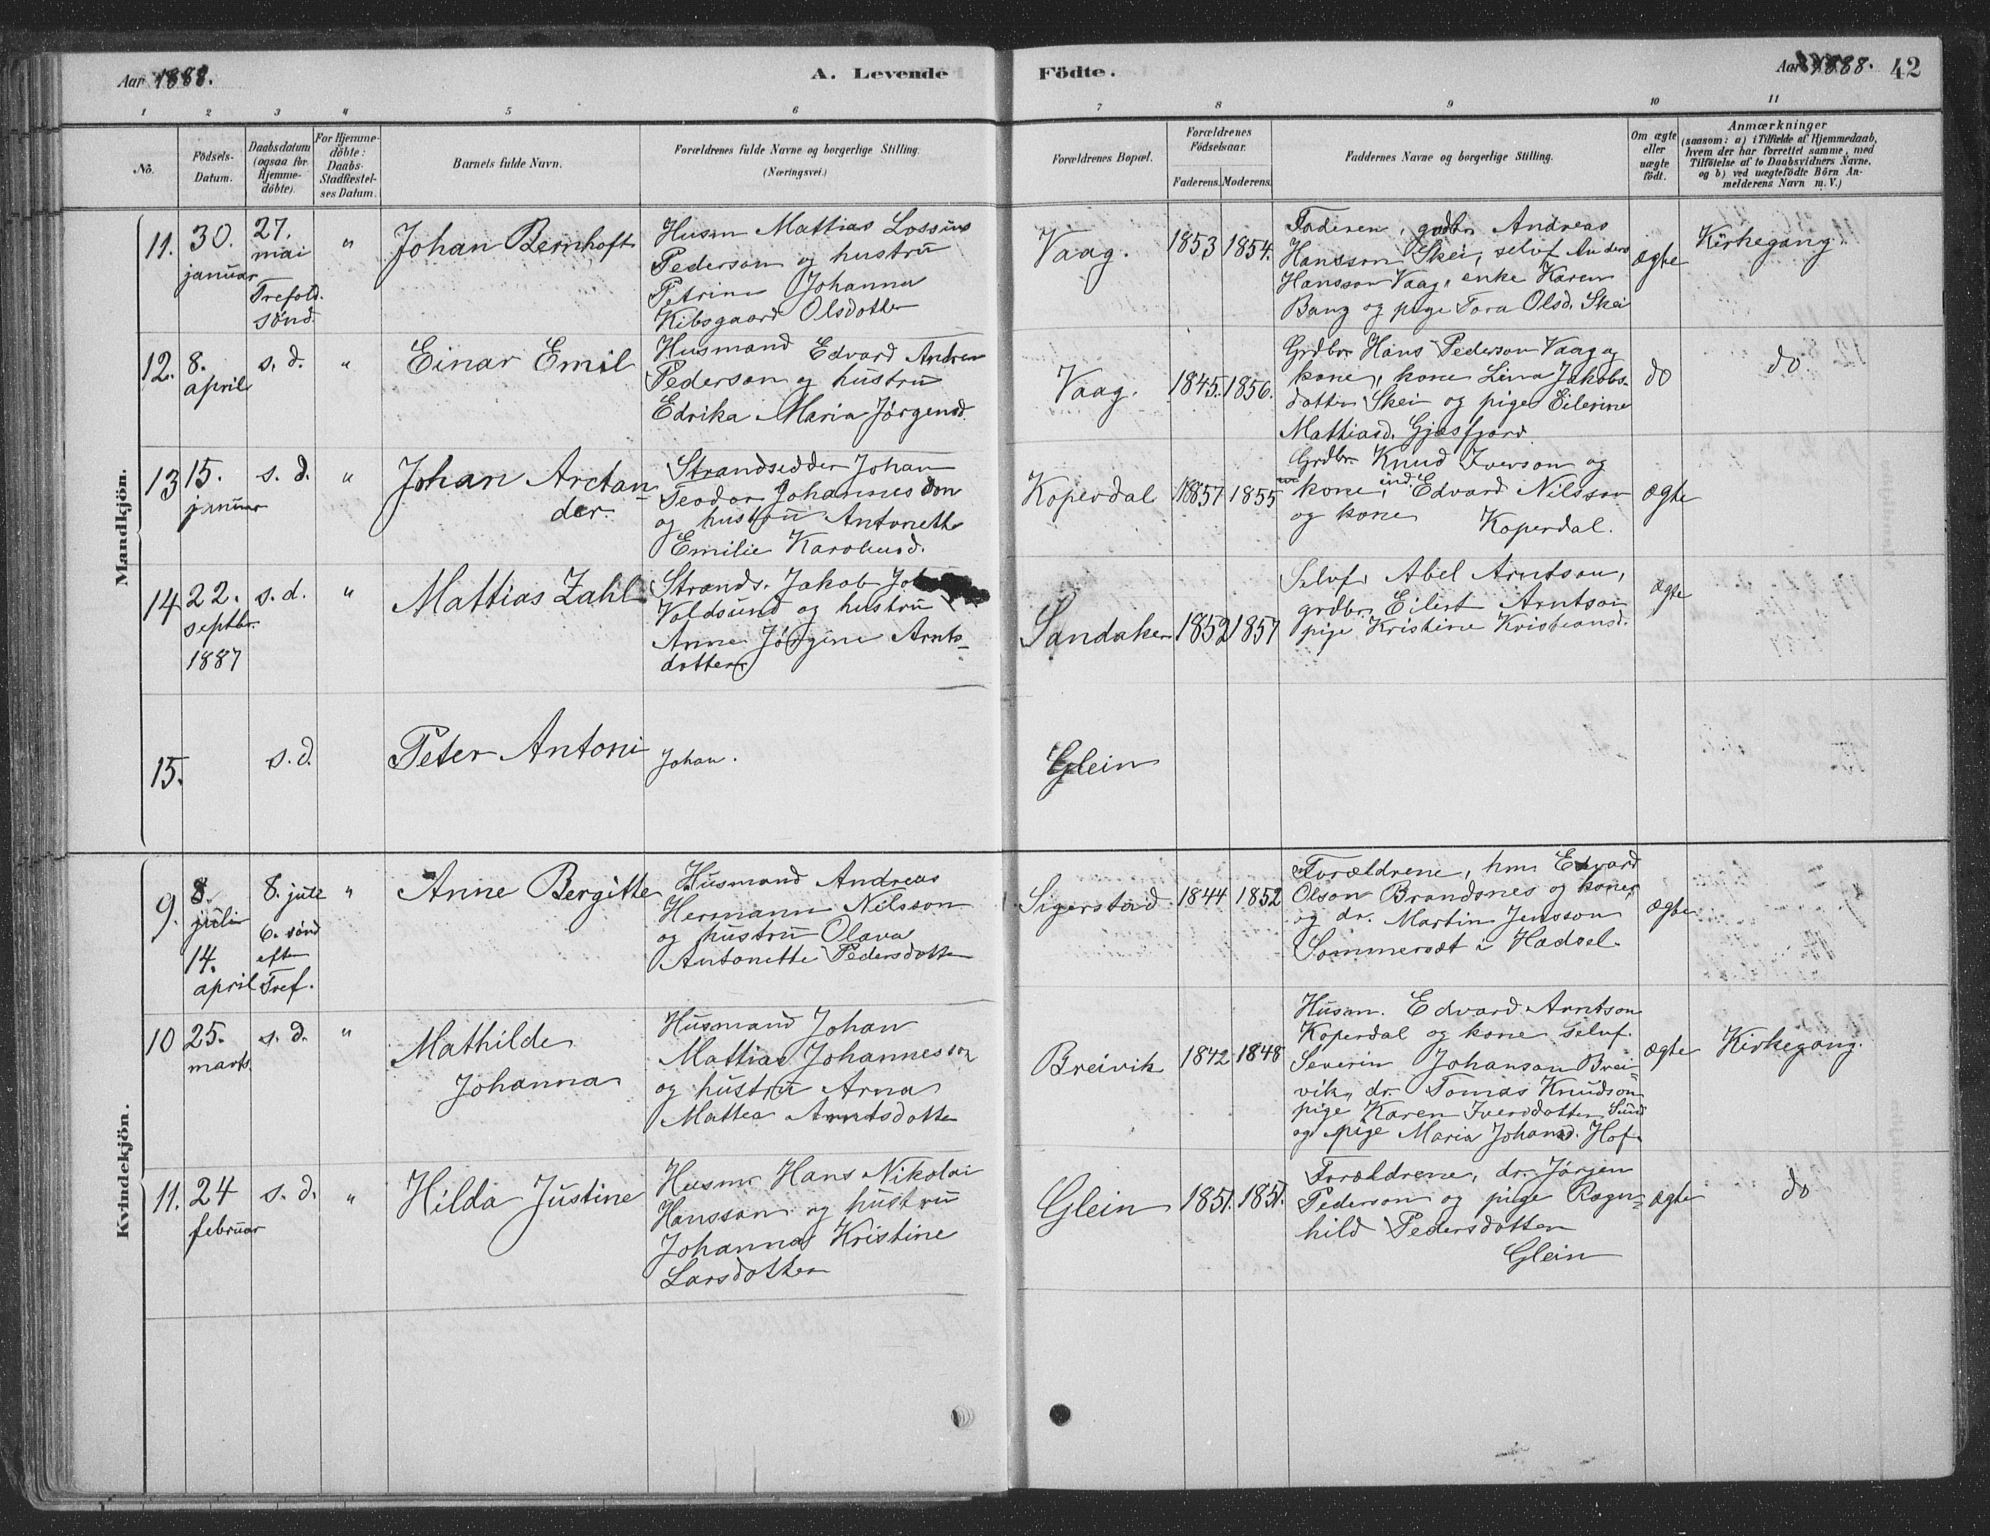 Aar 1888.
A. Levende
Fødte.
Aar 1888. 42
1 2 3 4 5 6 7 8 9 10 11
No.
Fødsels-
Datum.
Daabsdatum
(ogsaa for
Hjemme-
døbte).
For Hjemme-
døbte:
Daabs-
Stadfæstel-
ses Datum.
Barnets fulde Navn.
Forældrenes fulde Navne og borgerlige Stilling.
(Næringsvei.)
Forældrenes Bopæl.
Forældrenes
Fødselsaar.
Faderens. Moderens.
Faddernes Navne og borgerlige Stilling.
Om ægte
eller
uægte
født.
Anmærkninger
(saasom: a) i Tilfælde af Hjemmedaab,
hvem der har forrettet samme, med
Tilføielse af to Daabsvidners Navne,
og b) ved uægtefødte Børn An-
melderens Navn m. V.)
Mandkjön.
11.
30.
januar
27.
mai
Trefold.
sønd.
"
Johan Bernhoft
Husm Mattias Lossius
Pederson og hustru
Petrine Johanna
Kibsgaard Olsdotter
Vaag.
1853
1854.
Faderen, grdbr. Andreas
Hansson Skei, selvf Anders
Hansson Vaag, enke Karen
Bang og pige Tora Olsd. Skei
ægte
Kirkegang.
12.
8.
april
s. d.
"
Einar Emil
Husmand Edvard Andrea
Pederson og hustru
Edrika Maria Jørgensd.
Vaag.
1845.
1856.
Grdbr Hans Pederson Vaag og
kone, kone Lina Jakobs-
dotter Skei og pige Eilerine
Mattiasd. Gjæsfjord
do
do
13
15.
januar
s. d.
"
Johan Arctan
der.
Strandsidder Johan
Teodor Johannesson
og hustru Antonette
Emilie Karolusd.
Koperdal
1857
1855
Grdbr. Knud Iverson og
kone, ind. Edvard Nilsson
og kone Koperdal.
ægte
14
22.
septbr.
1887
s. d.
"
Mattias Zahl
Strands. Jakob
Voldsund og hustru
Anne Jørgine Arnts-
dotter
Sandaker
1852
1857
Selvf. Abel Arntson,
grdbr. Eilert Arntson
pige Kristine Kristiansd.
ægte
15.
s. d.
Peter Antoni
Johan.
Glein
Kvindekjön.
9.
8.
julii
14.
april
8. juli
6. sønd
efter
Tref.
"
Anne Bergitte
Husmand Andreas
Hermann Nilsson
og hustru Olava
Antonette Pedersdotter
Sigerstad
1844
1852
Forældrene, hm Edvard
Olson Brandsnes og kone,
og dr. Martin Jensson
Sommersæt i Hadsel.
ægte
10
25.
marts
s. d.
"
Mathilde
Johanna
Husmand Johan
Mattias Johannesson
og hustru Arna
Mattea Arntsdotter
Breivik
1842
1848
Husm. Edvard Arntson
Koperdal og kone selvf.
Severin Johanson Brei-
vik, dr. Tomas Knudson
pige Karen Iversdotter Sund
og pige Maria Johansd. Hof.
ægte
Kirkegang.
11.
24
februar
s. d.
"
Hilda Justine
Husmr Hans Nikolai
Hansson og hustru
Johanna Kristine
Larsdotter
Glein
1851.
1851.
Forældrene, dr. Jørgen
Pederson og pige Ragn-
hild Pedersdotter
Glein
ægte
do